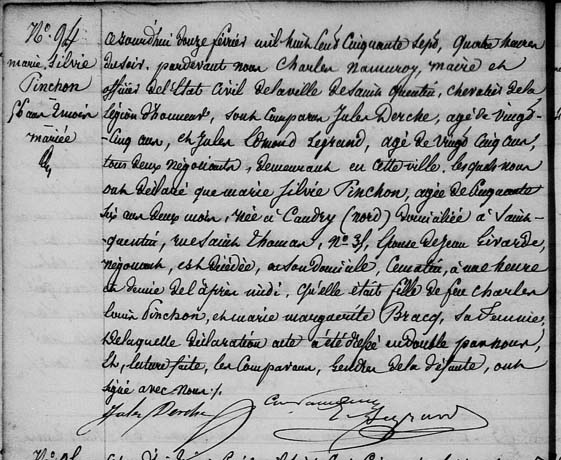 N° 94
marie Silvie
Pinchon
56 ans 2 mois
mariée
Cejourdhui douze février mil huit cent cinquante sept, quatre heures
du soir. pardevant nous Charles namuroy, maire et
officier de l'Etat Civil de la ville de Saint quentin, chevalier de la
légion d'honneur, sont comparus Jules Derche, agé de vingt
cinq ans, et Jules Edmond Legrand, agé de vingt cinq ans,
tous deux négociants, demeurant en cette ville. lesquels nous
ont déclaré que marie Silvie Pinchon, agée de cinquante
six ans deux mois, née à Caudry (nord) domiciliée à Saint
quentin, rue Saint Thomas, N° 35, épouse de Jean Livarde,
négociant, est décédée, en son domicile, ce matin, à une heure
et demie de l'après midi. Qu'elle était fille de feu Charles
louis Pinchon, et marie marguerite Bracq, sa femme,
de laquelle déclaration acte a été dressé en double par nous,
Et, lecture faite, les comparans, gendres de la défunte, ont
signé avec nous /.
Jules Derche
E. Legrand